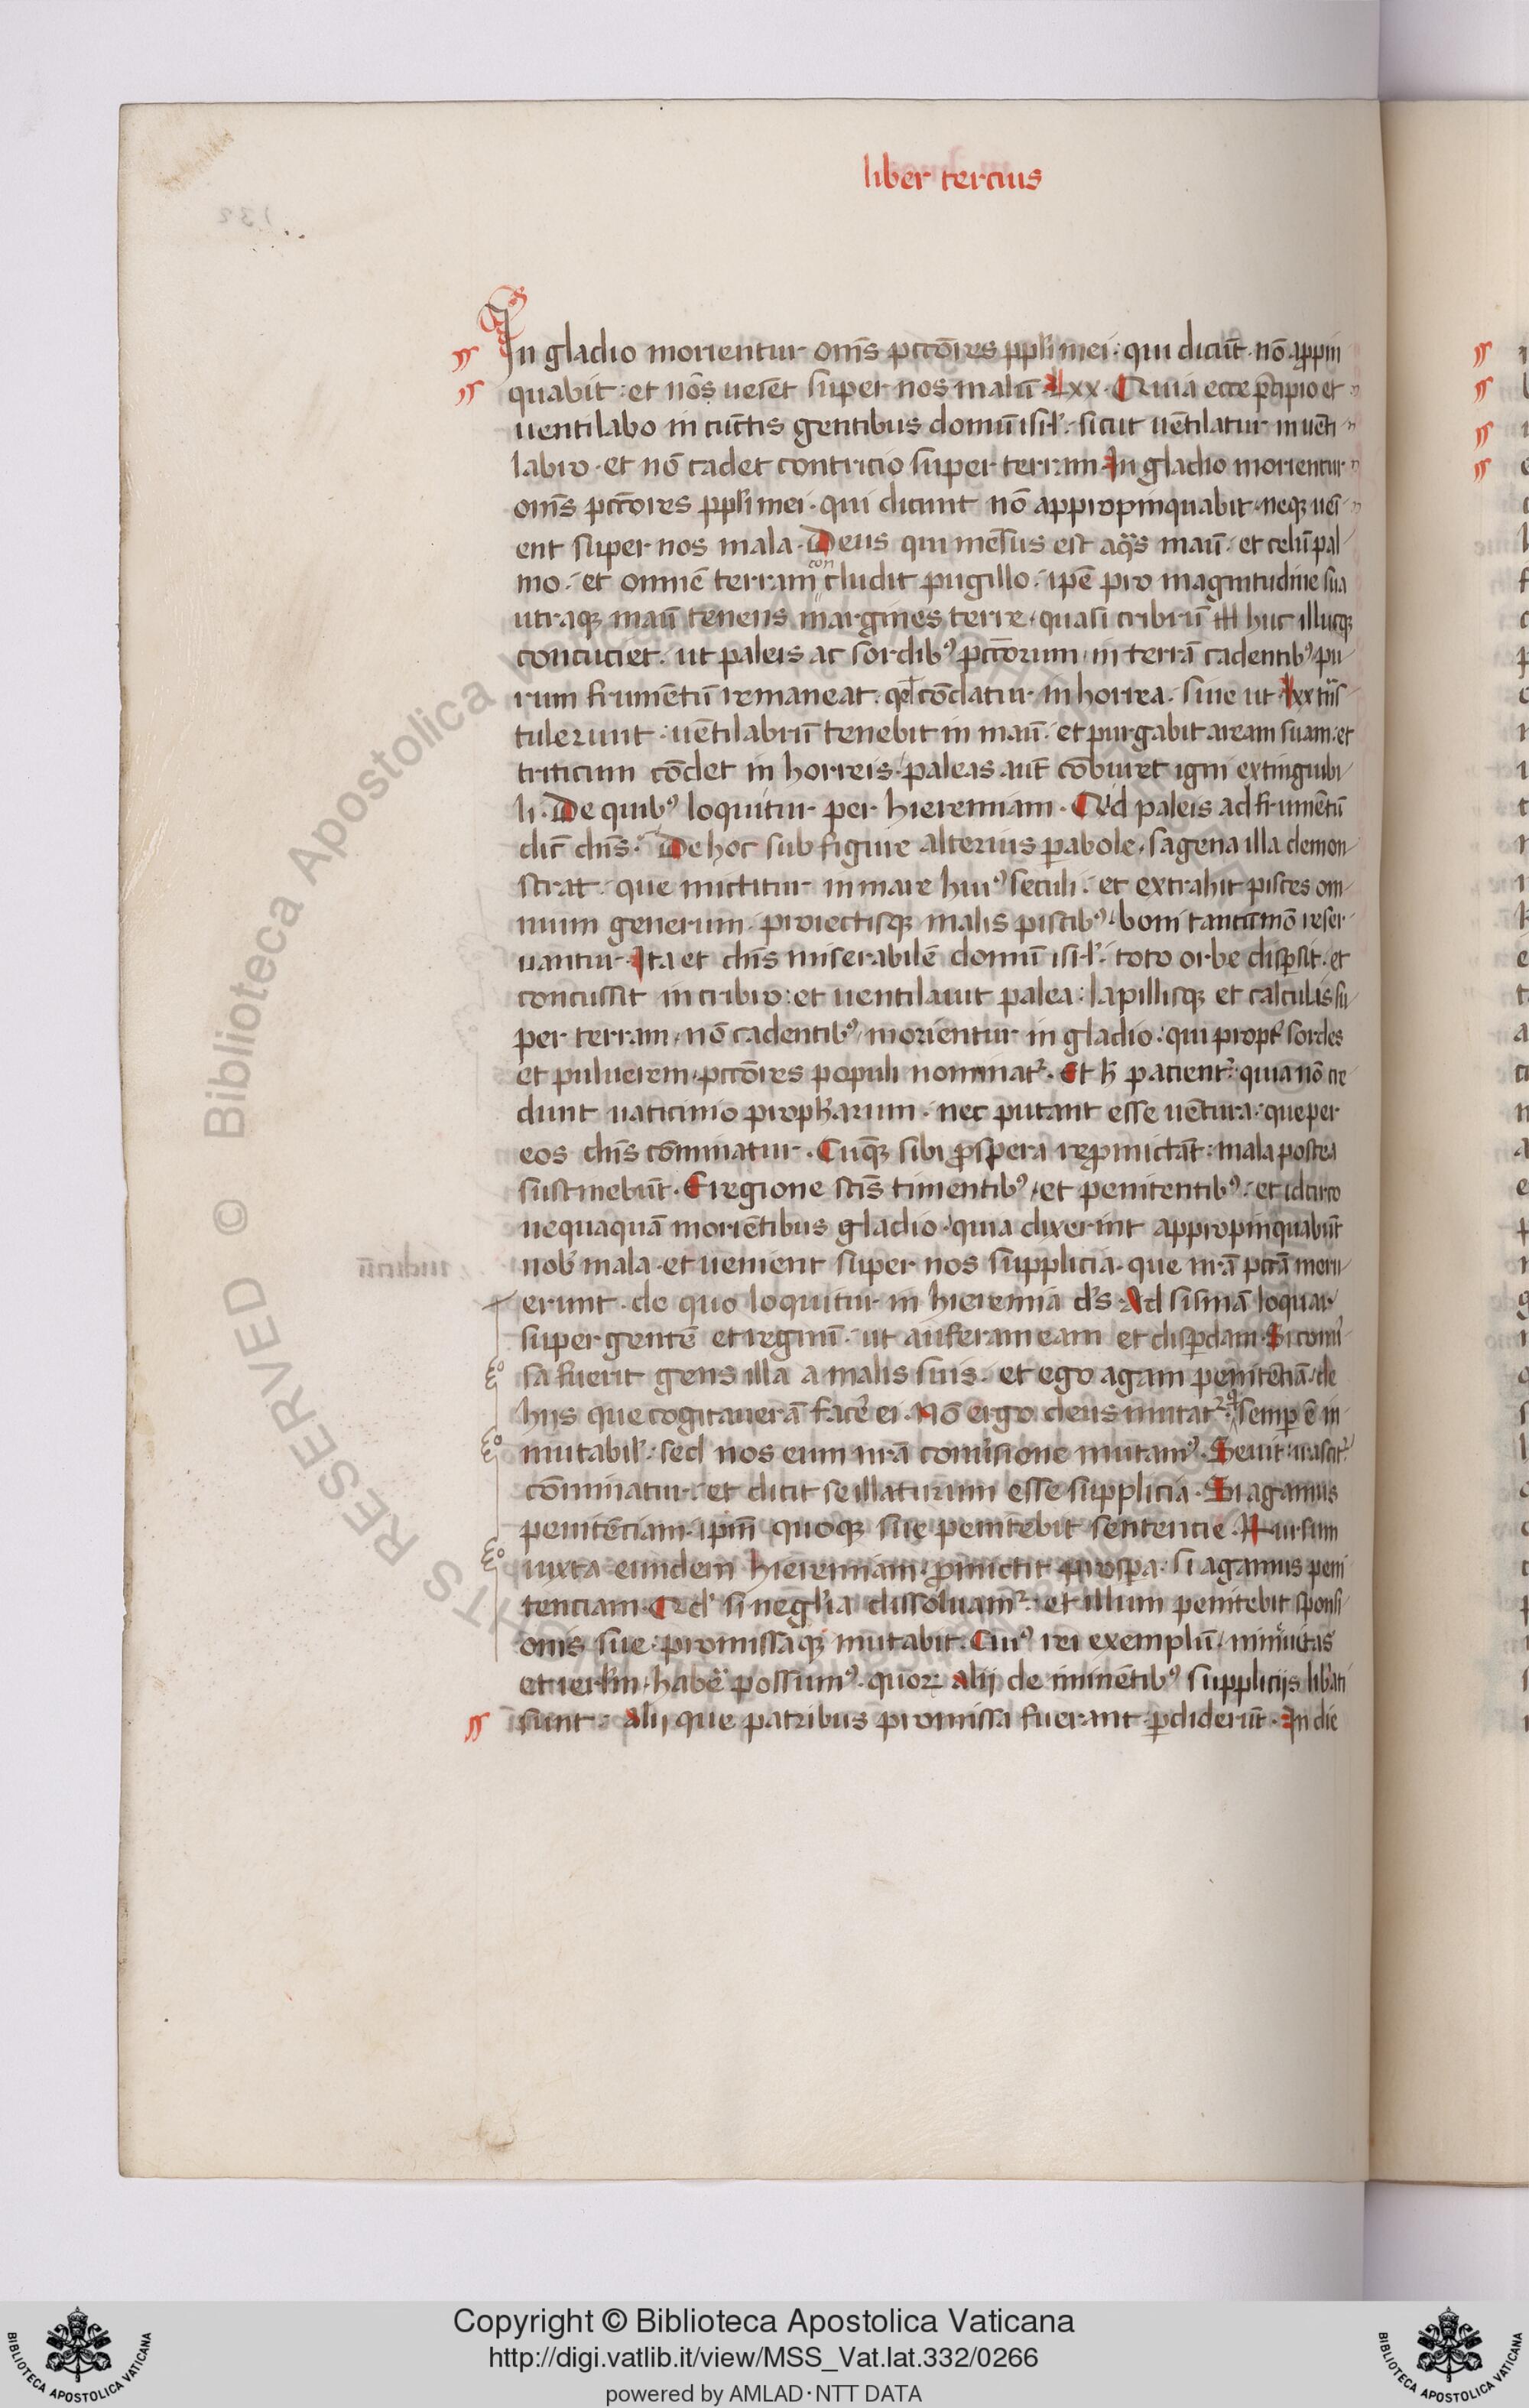 liber tercius
In gladio morientur om̄s pcc̄ores ppl̄i mei · qui dicūt · nō appin
quabit : et nōs ueīet super nos malū · Lxx · Quia ecce p̄cipio et
uentilabo in cunctis gentibus domū isr̄l · sicut uētilatur in uēti
labro · et nō cadet contricio super terram · In gladio morientur
om̄s pcc̄ores ppl̄i mei · qui dicunt nō appropinquabit · neqꝫ uēi
ent super nos mala · Deus qui mēsus est aq̄s manū · et celū pal
mo · et omnē terram con cludit pugillo · ipē pro magnitudine sua
utraqꝫ manū tenens margines terre · quasi cribrū huc illucqꝫ
concuciet · ut paleis ac sordibꝰ pcc̄orum · in terrā cadentibꝰ · pu
rum frumētū remaneat · qd̄ cōdatur in horrea · siue ut lxx t̄ns
tulerunt · uētilabrū tenebit in manū · et purgabit aream suam · et
triticum cōdet in horreis · paleas aut̄ cōburet igni extinguibi
li · De quibꝰ loquitur per hieremiam · Qͥd paleis ad frumētū
dic̄ dn̄s · De hoc sub figure alterius ꝑabole · sagena illa demon
strat · que mictitur in mare huiꝰ seculi · et extrahit pisces om
nium generum · proiectisqꝫ malis piscibꝰ · boni tantūmō reser
uantur · Ita et dn̄s miserabilē domū isr̄l · toto orbe disꝑsit · et
concussit in cribro : et uentilauit palea : lapillisqꝫ et calculis su
per terram · nō cadentibꝰ · morientur in gladio · qui propt̄ sordes
et puluerem · pcc̄ores populi nominat᷑ · Et h̄ patient᷑ · quia nō cre
dunt uaticinio proph̄arum · nec putant esse uētura · que per
eos dn̄s cōminatur · Cuqꝫ sibi ꝓspera reꝓmictāt : mala postea
sustinebūt · Eregione sc̄is timentibꝰ · et penitentibꝰ · et idcirco
nequaquā moriētibus gladio · quia dixerint appropinquabūt
nob̄ mala · et uenient super nos supplicia · que nr̄a pcc̄ā meru
erunt · de quo loquitur in hieremia ds̄ · Ad sūmā loquar
super gentē et regnū · ut auferam eam et disꝑdam · Si conū
sa fuerit gens illa a malis suis · et ego agam penitētiā · de
hiis que cogitauerā facē ei · Nō ergo deus mutat᷑ · qͥ semꝑ ē in
mutabil̄ · sed nos eum nr̄ā conūsione mutamꝰ · Seuit · irascit᷑
cōminatur · et dicit se illaturum esse supplicia · Si agamus
penitēciam · ipm̄ quoqꝫ sue penitebit sententie · Rursum
iuxta eundem hieremiam · ꝓmictit prosꝑa · si agamus peni
tenciam · Qd̄ si neglīa dissoluam᷑ · et illum penitebit sponsi
onis sue · promissaqꝫ mutabit · Cuiꝰ rei exemplū · niniuitas
et ierl̄m · habē possumꝰ · quoꝝ alij de iminētibꝰ supplicijs lib̄ati
sunt · Alij que patribus promissa fuerant ꝑdiderūt · In die
Copyright © Biblioteca Apostolica Vaticana
http://digi.vatlib.it/view/MSS_Vat.lat.332/0266
powered by AMLAD·NTT DATA